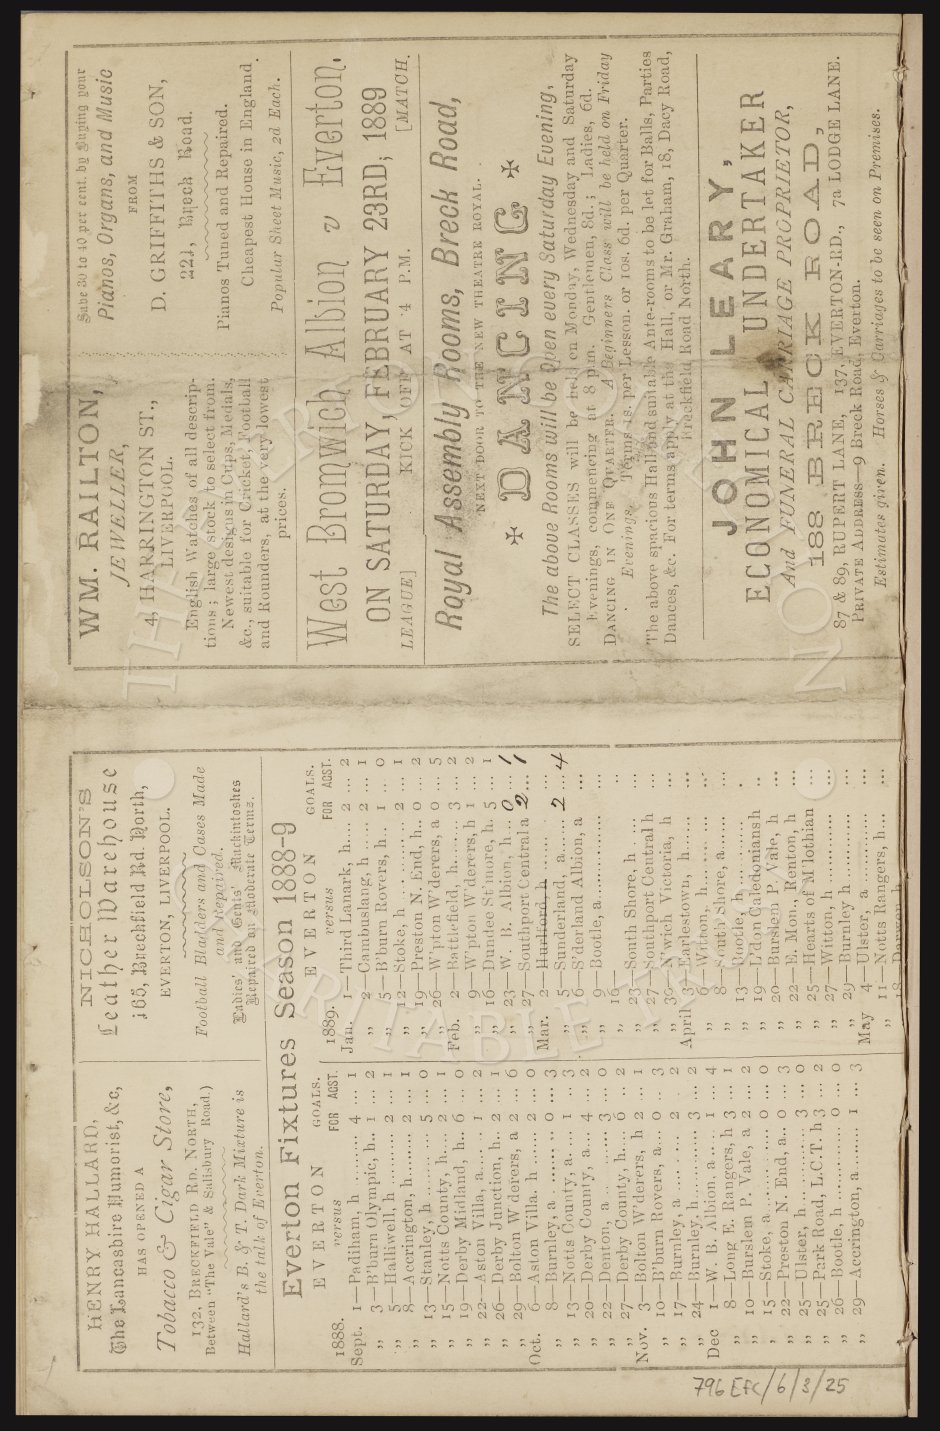 HENRY HALLARD,
The Lancashire Humorist, &c,
HAS OPENED A
Tobacco & Cigar Store,
132, BRECKFIELD RD. NORTH,
Between "The Vale" & Salisbury Road.)
Hallard's B. & T. Dark Mixture is
the talk of Everton.
NICHOLSON'S
Leather Warehouse
165, Breckfield Rd. North,
EVERTON, LIVERPOOL.
Football Bladders and Cases Made
and Repaired.
Ladies' and Gents' Mackintoshes
Repaired on Moderate Terms.
Everton Fixtures Season 1888-9
EVERTON GOALS.
1888. versus FOR AGST.
Sept. 1—Padiham, h ......... 4 ... 1
,, 3—B'burn Olympic, h.. 1 ... 2
,, 5—Halliwell, h ......... 2 ... 1
,, 8—Accrington, h......... 2 ... 1
,, 13—Stanley, h ......... 5 ... 0
,, 15—Notts County, h.... 2 ... 1
,, 19—Derby Midland, h.. 6 ... 0
,, 22—Aston Villa, a..... 1 ... 2
,, 26—Derby Junction, h.. 2 ... 1
,, 29—Bolton W'derers, a 2 ... 6
Oct. 6—Aston Villa. h ...... 2 ... 0
,, 8—Burnley, a ......... 0 ... 3
,, 13—Notts County, a.... 1 ... 3
,, 20—Derby County, a.... 4 ... 2
,, 22—Denton, a ......... 3 ... 0
,, 27—Derby County, h.... 6 ... 2
Nov. 3—Bolton W'derers, h 2 ... 1
,, 10—B'burn Rovers, a... 0 .. 3
,, 17—Burnley, a ......... 2 ... 2
,, 24—Burnley, h......... 3 ... 2
Dec 1—W. B. Albion, a... 1 ... 4
,, 8—Long E. Rangers, h 3 ... 1
,, 10—Burslem P. Vale, a 2 ... 2
,, 15—Stoke, a............ 0 ... 0
,, 22—Preston N. End, a.. 0 ... 3
,, 25—Ulster, h............ 3 ... 0
,, 25—Park Road, L.C.T. h 3 ... 2
,, 26—Bootle, h ............ 0 ... 0
,, 29—Accrington, a ...... 1 ... 3
EVERTON GOALS.
1889. versus FOR AGST.
Jan. 1—Third Lanark, h.... 2 ... 2
,, 2—Cambuslang, h ..... 2 ... 1
,, 5—B'burn Rovers, h... 1 .. 0
,, 12—Stoke, h ............ 2 ... 1
,, 19—Preston N. End, h.. 0 ... 2
,, 26—W'pton W'derers, a 0 ... 5
Feb. 2—Battlefield, h........ 3 ... 2
,, 9—W'pton W'derers, h 1 ... 2
,, 16—Dundee St'more, h. 5 ... 1
,, 23—W. B. Albion, h ... 0 ... 1
,, 27—Southport Central a 2 ... 1
Mar. 2—Hurlford h .........
,, 5—Sunderland, a....... 2 ... 4
,, 6—S'derland Albion, a ...
,, 9—Bootle, a............ ...
,, 16— ..
,, 23—South Shore, h .... ...
,, 27—Southport Central h ...
,, 30—N'wich Victoria, h ...
April 3—Earlestown, h...... ...
,, 6—Witton, h...... ...
,, 8—South Shore, a...... ...
,, 13—Bootle, h............ .
,, 19—L'don Caledonians h ..
,, 20—Burslem P. Vale, h ...
,, 22—E. Mon., Renton, h ...
,, 25—Hearts of M'lothian ...
,, 27—Witton, h ............ ...
,, 29—Burnley h ............ ...
May 4—Ulster, a ............ ...
,, 11—Notts Rangers, h... ...
,, 18—Darwen, h
WM. RAILTON,
JEWELLER,
4, HARRINGTON ST.,
LIVERPOOL.
English Watches of all descrip-
tions; large stock to select from.
Newest designs in Cups, Medals,
&c., suitable for Cricket, Football
and Rounders, at the very lowest
prices.
Save 30 to 40 per cent by Buying your
Pianos, Organs, and Music
FROM
D. GRIFFITHS & SON,
221, Breck Road.
Pianos Tuned and Repaired.
Cheapest House in England.
Popular Sheet Music, 2d Each.
West Bromwich Albion v Everton,
ON SATURDAY, FEBRUARY 23RD, 1889
LEAGUE] KICK OFF AT 4 P.M. [MATCH.
Royal Assembly Rooms, Breck Road,
NEXT DOOR TO THE NEW THEATRE ROYAL.
✠ DANCING ✠
The above Rooms will be Open every Saturday Evening,
SELECT CLASSES will be held on Monday, Wednesday and Saturday
Evenings, commencing at 8 p.m. Gentlemen, 8d.; Ladies, 6d.
DANCING IN ONE QUARTER. A Beginners Class will be held on Friday
Evenings. Terms 1s. per Lesson. or 10s. 6d. per Quarter.
The above spacious Hall and suitable Ante-rooms to be let for Balls, Parties
Dances, &c. For terms apply at the Hall, or Mr. Graham, 18, Dacy Road,
Breckfield Road North.
JOHN LEARY,
ECONOMICAL UNDERTAKER
And FUNERAL CARRIAGE PROPRIETOR,
188 BRECK ROAD,
87 & 89, RUPERT LANE, 137, EVERTON-RD., 7a LODGE LANE.
PRIVATE ADDRESS—9 Breck Road, Everton.
Estimates given. Horses & Carriages to be seen on Premises.
796 EFC/6/3/25
THE EVERTON COLLECTION
CHARITABLE TRUST